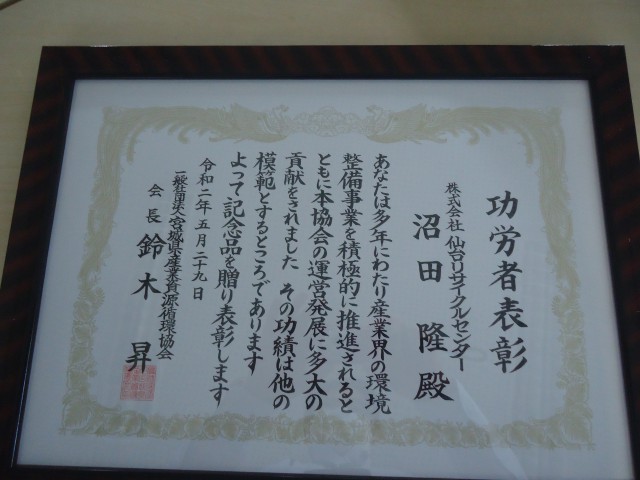 功労者表彰
株式会社 仙台リサイクルセンター
沼田 隆 殿
あなたは多年にわたり産業界の環境
整備事業を積極的に推進されると
ともに本協会の運営発展に多大の
貢献をされました その功績は他の
模範とするところであります
よって記念品を贈り表彰します
令和二年五月二十九日
一般社団法人宮城県産業資源循環協会
会長 鈴木 昇